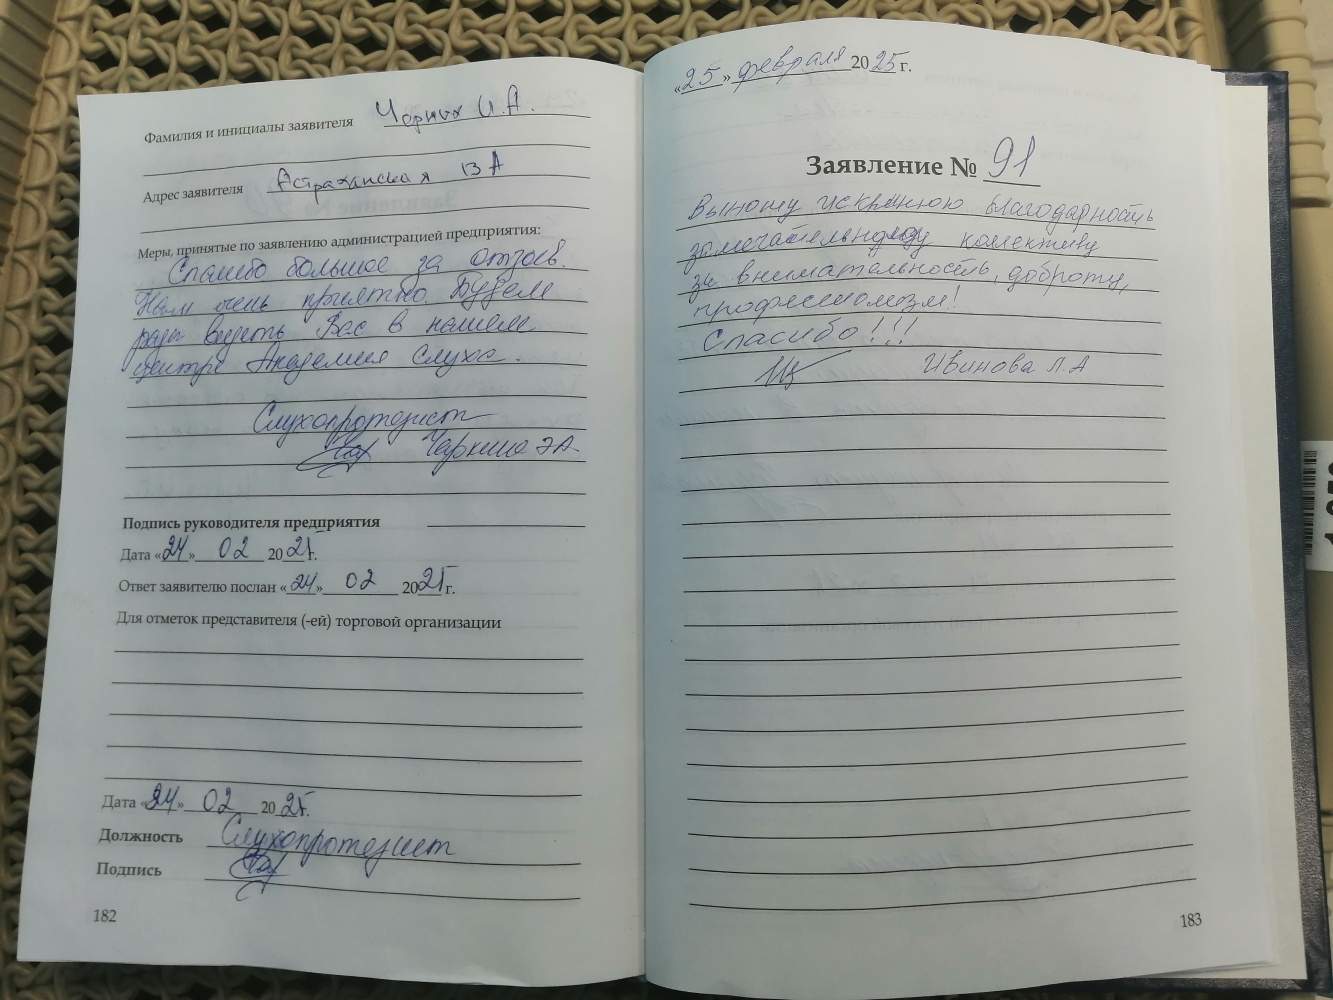 Фамилия и инициалы заявителя Черных И.А.
Адрес заявителя Астраханская 13 А
Меры, принятые по заявлению администрацией предприятия:
Спасибо большое за отзыв.
Нам очень приятно. Будем
рады видеть Вас в нашем
центре Академия Слуха.
Слухопротезист
Чаркина Э А
Подпись руководителя предприятия
Дата «24» 02 2025г.
Ответ заявителю послан «24» 02 2025г.
Для отметок представителя (-ей) торговой организации
Дата «24» 02 2025г.
Должность Слухопротезист
Подпись
182
«25» февраля 2025 г.
Заявление № 91
Выношу искреннюю благодарность
замечательному коллективу
за внимательность, доброту,
профессионализм!
Спасибо!!!
Ивинова Л.А
183